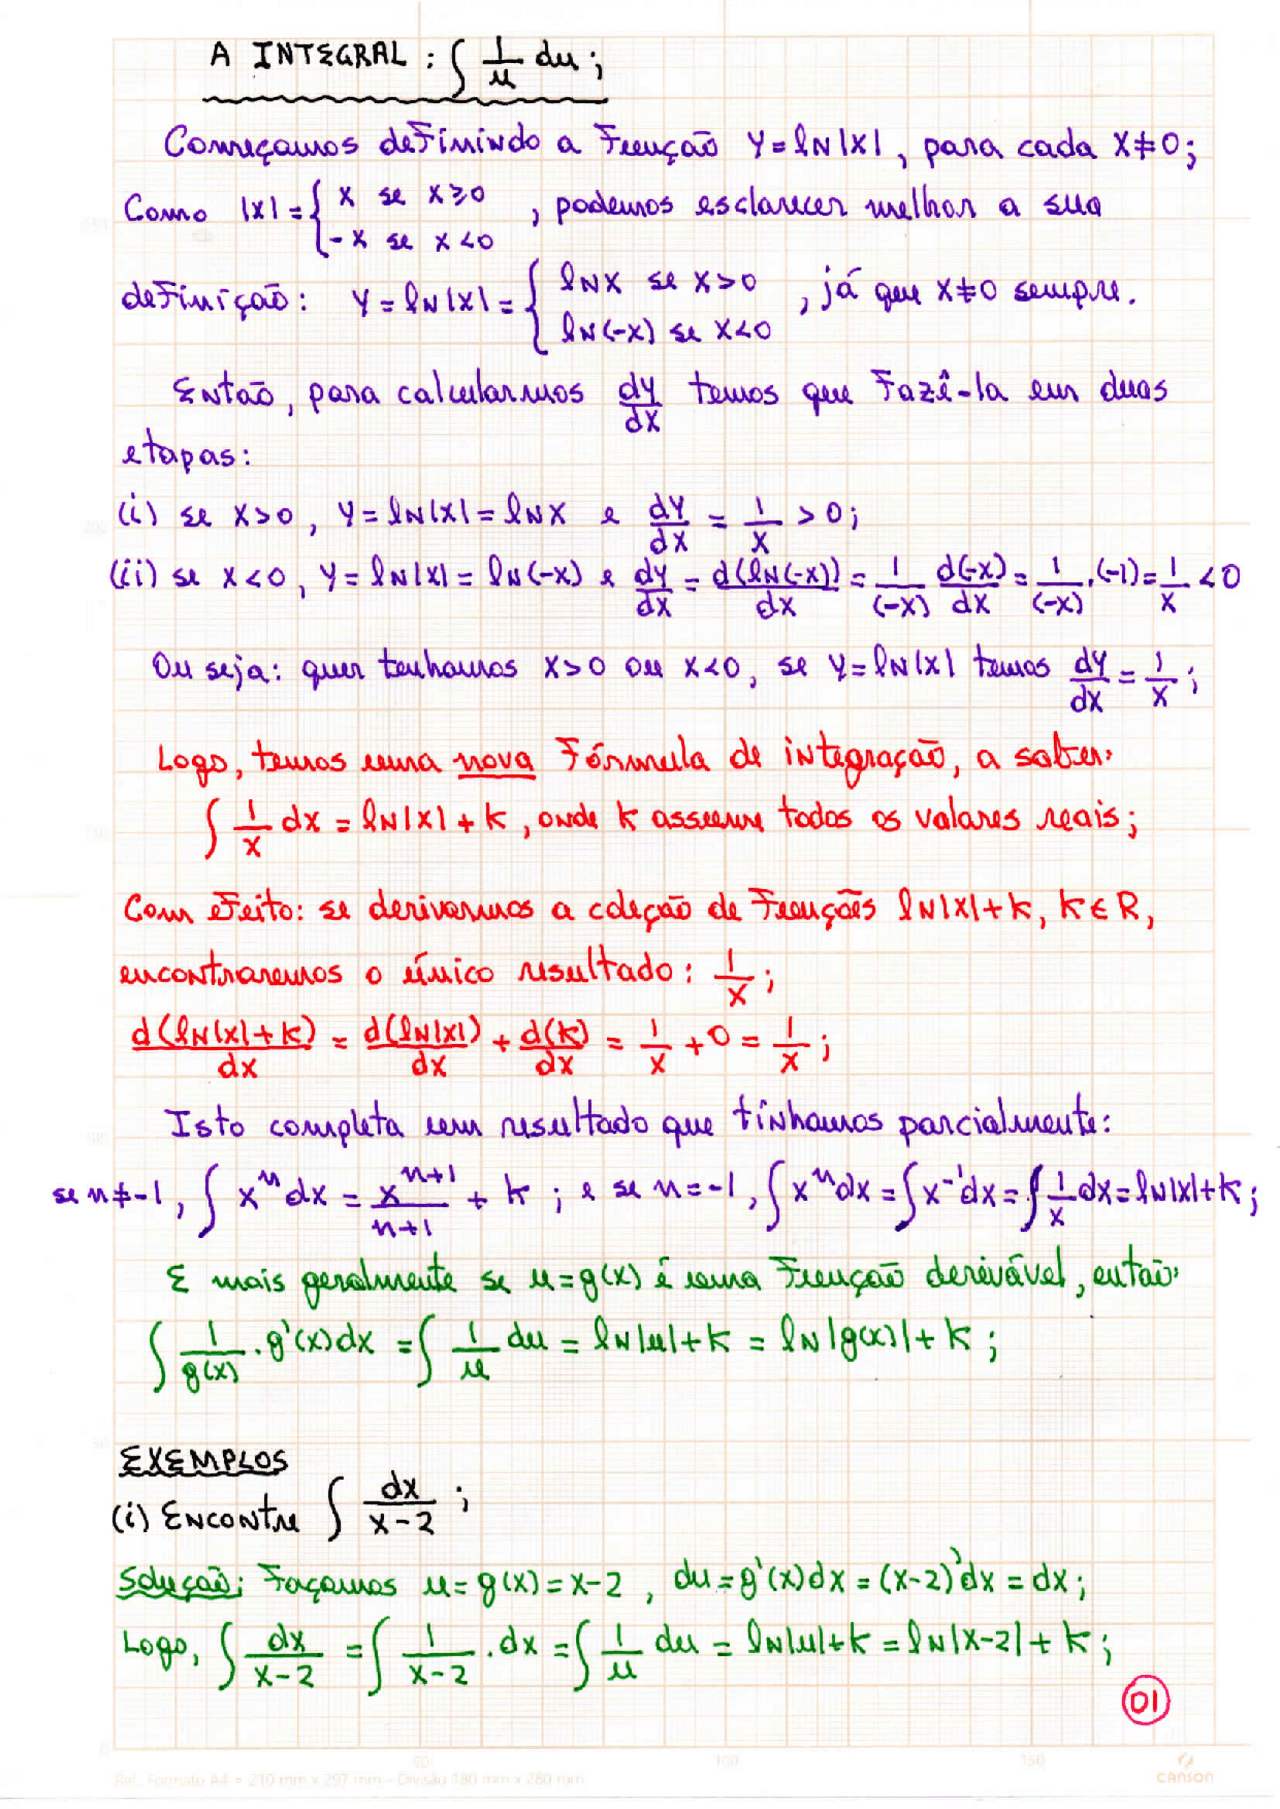 A INTEGRAL : ∫ 1/u du ;
Começamos definindo a função y = ln|x|, para cada x ≠ 0 ;
Como |x| = { x se x ≥ 0 ; -x se x < 0 , podemos esclarecer melhor a sua
definição: y = ln|x| = { ln x se x > 0 ; ln(-x) se x < 0 , já que x ≠ 0 sempre.
Então, para calcularmos dy/dx temos que fazê-la em duas
etapas:
(i) se x > 0, y = ln|x| = ln x e dy/dx = 1/x > 0 ;
(ii) se x < 0, y = ln|x| = ln(-x) e dy/dx = d(ln(-x))/dx = 1/(-x) d(-x)/dx = 1/(-x) .(-1) = 1/x < 0
Ou seja: quer tenhamos x > 0 ou x < 0, se y = ln|x| temos dy/dx = 1/x ;
Logo, temos uma nova fórmula de integração, a saber:
∫ 1/x dx = ln|x| + k, onde k assume todos os valores reais ;
Com efeito: se derivarmos a coleção de funções ln|x| + k, k ∈ R,
encontraremos o único resultado: 1/x ;
d(ln|x| + k)/dx = d(ln|x|)/dx + d(k)/dx = 1/x + 0 = 1/x ;
Isto completa um resultado que tínhamos parcialmente:
se n ≠ -1, ∫ xⁿ dx = xⁿ⁺¹/n+1 + k ; e se n = -1, ∫ xⁿ dx = ∫ x⁻¹ dx = ∫ 1/x dx = ln|x| + k ;
E mais geralmente se u = g(x) é uma função derivável, então:
∫ 1/g(x) . g'(x) dx = ∫ 1/u du = ln|u| + k = ln|g(x)| + k ;
EXEMPLOS
(i) Encontre ∫ dx/x-2 ;
Solução: Façamos u = g(x) = x-2 , du = g'(x) dx = (x-2)' dx = dx ;
Logo, ∫ dx/x-2 = ∫ 1/x-2 . dx = ∫ 1/u du = ln|u| + k = ln|x-2| + k ;
01
0 50 100 150
Ref. Formato A4 = 210 mm x 297 mm - Divisão 180 mm x 280 mm
CANSON